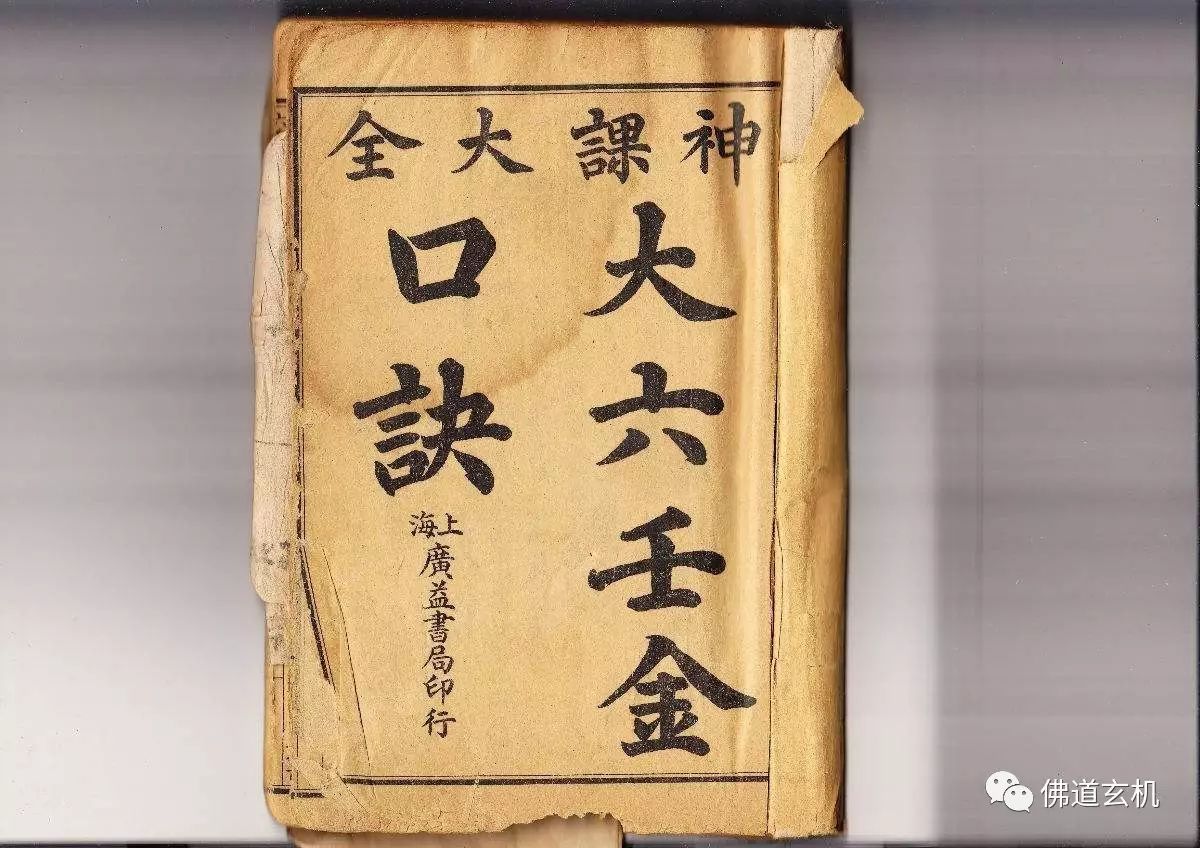 神課大全
大六壬金
口訣
上海
廣益書局印行
佛道玄机